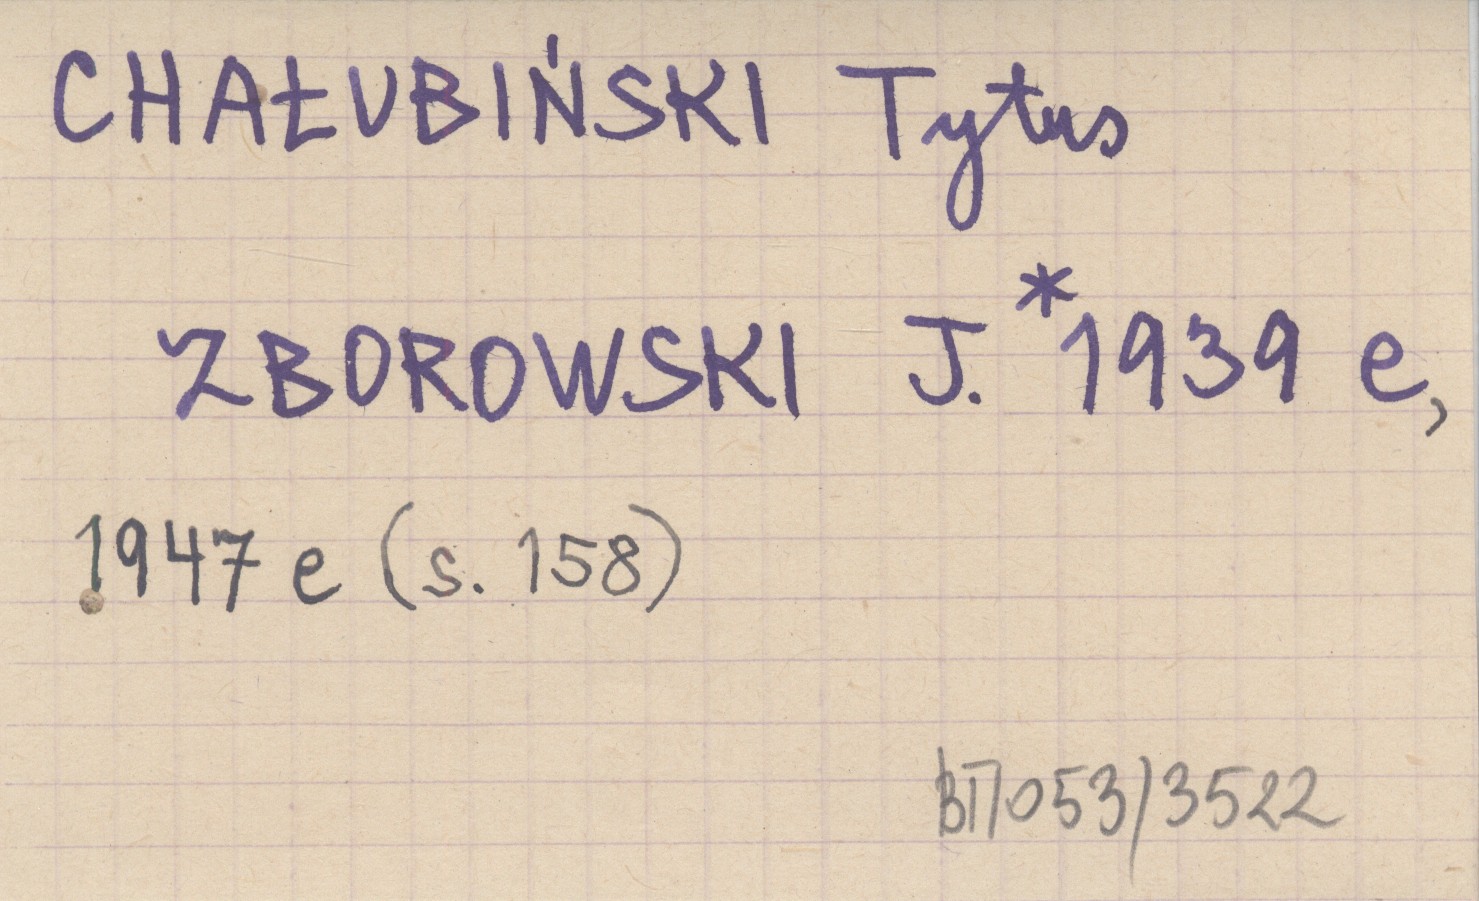 CHAŁUBIŃSKI Tytus
ZBOROWSKI J.*1939 e,
1947 e (s. 158)
BП053/3522